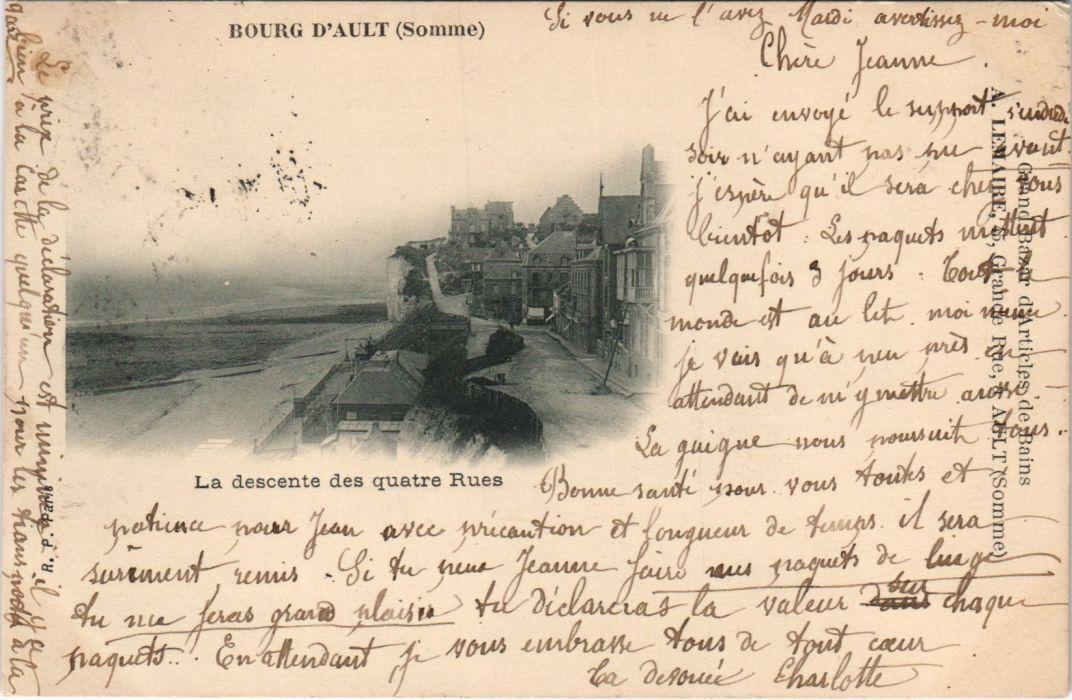 BOURG D'AULT (Somme)
Si vous ne l'avez Mardi avertissez-moi
Chère Jeanne.
J'ai envoyé le support
soir n'ayant pas pu avant.
j'espère qu'il sera chez vous
bientôt. Les paquets mettent
quelquefois 3 jours. Tout le
monde est au lit. moi même
je vais qu'à peu près en
attendant de m'y mettre aussi.
La guigne nous poursuit tous..
Bonne santé pour vous toutes et
patience pour Jean avec précaution et longueur de temps. il sera
sûrement remis. Si tu peux Jeanne faire mes paquets de linge
tu me feras grand plaisir tu déclareras la valeur sur chaque
paquets.. En attendant je vous embrasse tous de tout cœur
Ta dévouée Charlotte
La descente des quatre Rues
Grand Bazar d'Articles de Bains
A. LEMAIRE, 45, Grande Rue, AULT (Somme)
Le prix de la déclaration est minime il y a
bien à la Cayotte quelqu'un pour les transporter à la
gare